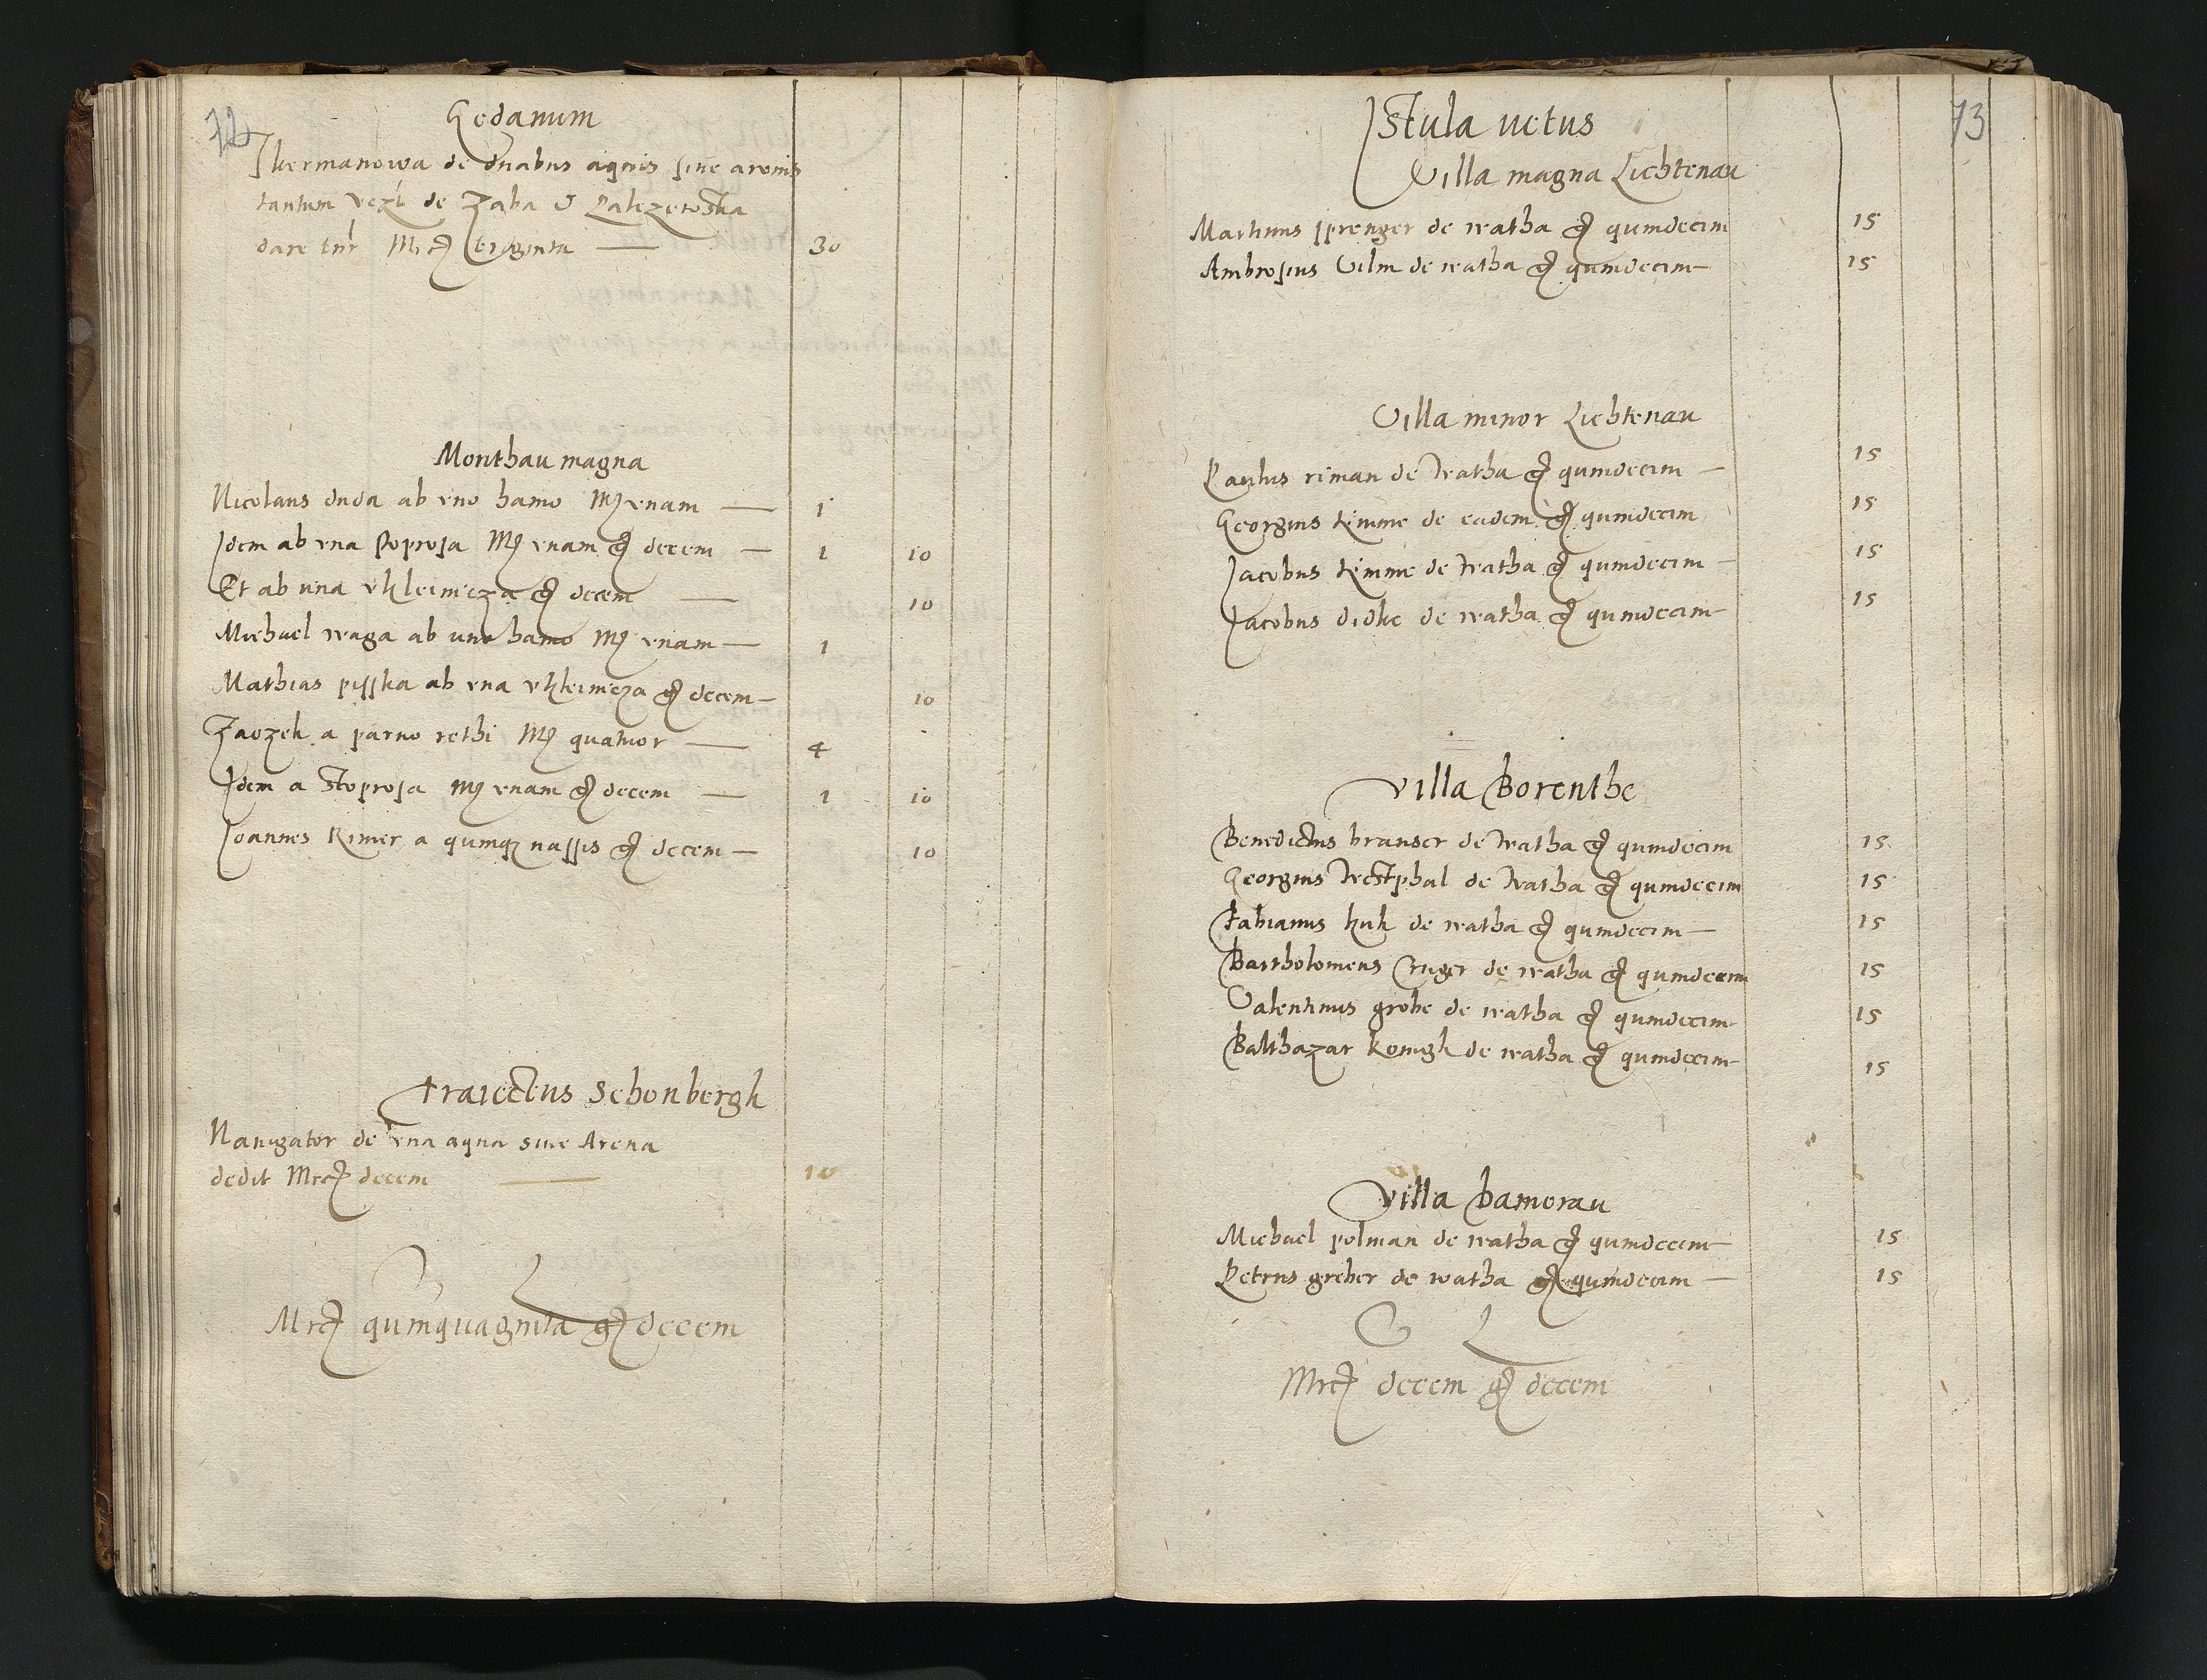 72
Gedanum
Ikermanowa de duabus aquis siue arenis
tantum de Zaba &
dare tnr Mrc triginta — 30
Monthau magna
Nicolaus duda ab vno hamo Mr vnam — 1
Idem ab vna stoprosa Mr vnam g decem — 1 10
Et ab una vkleinicza g decem — 10
Michael waga ab uno hamo Mr vnam — 1
Mathias pisska ab vna vkleinicza g decem — 10
Zaozek a paruo rethi Mr quatuor — 4
Idem a stoprosa Mr vnam g decem — 1 10
Joannes Rimer a quinqz nassis g decem — 10
Traiectus Schonbergk
Nauigator de vna aqua siue Arena
dedit Mrc decem — 10
Mrc quinquaginta g decem
73
Istula uetus
Villa magna Lichtenau
Martinus sprenger de watha g quindecim 15
Ambrosius Vilm de watha g quindecim — 15
Villa minor Lichtenau
Paulus riman de watha g quindecim — 15
Georgius kimme de eadem g quindecim 15
Jacobus kimme de watha g quindecim — 15
Jacobus didke de watha g quindecim — 15
Villa Borenthe
Benedictus branser de watha g quindecim 15
Georgius Westphal de watha g quindecim 15
Fabianus kuk de watha g quindecim — 15
Bartholomeus Cruger de watha g quindecim 15
Valentinus grobe de watha g quindecim 15
Balthazar konigk de watha g quindecim — 15
Villa bamorau
Michael polman de watha g quindecim — 15
Petrus greber de watha g quindecim — 15
Mrc decem g decem